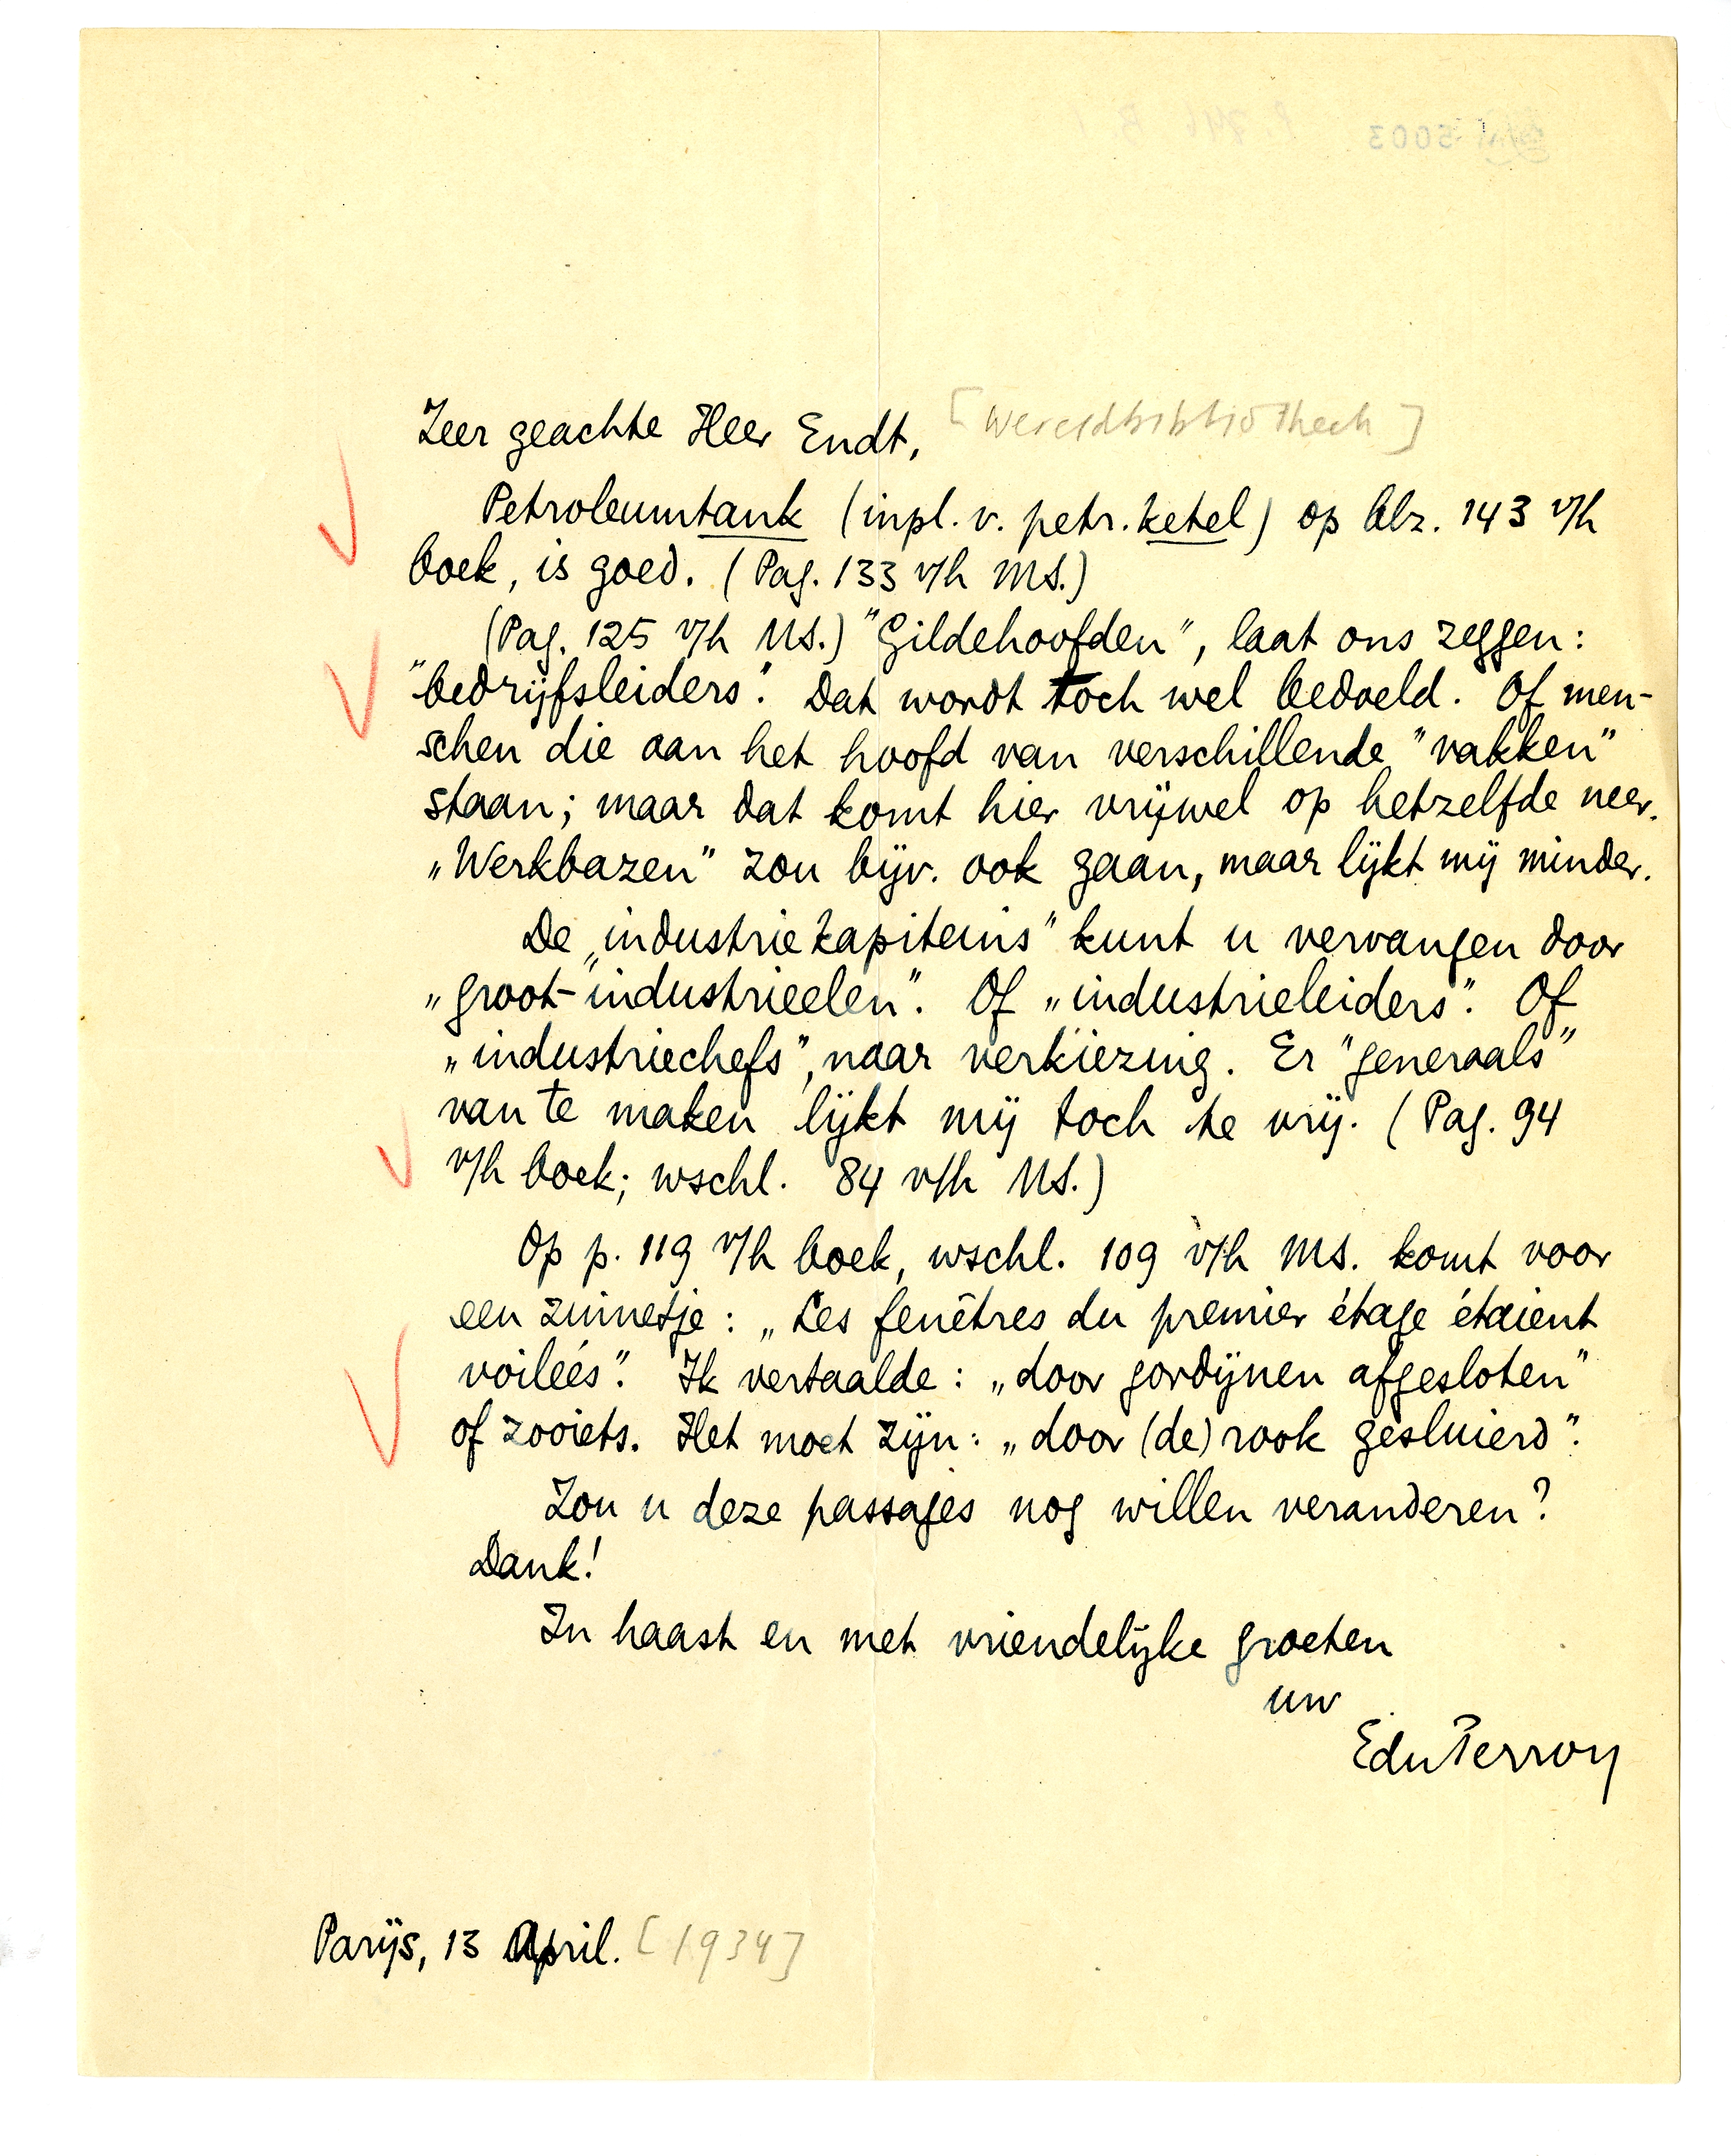 Zeer geachte Heer Endt, [Wereldbibliotheek]
Petroleumtank (inpl. v. petr. ketel) op blz. 143 v/h
boek, is goed. (Pag. 133 v/h MS.)
(Pag. 125 v/h MS.) "Gildehoofden", laat ons zeggen:
"bedrijfsleiders". Dat wordt toch wel bedoeld. Of men-
schen die aan het hoofd van verschillende "vakken"
staan; maar dat komt hier vrijwel op hetzelfde neer.
„Werkbazen" zou bijv. ook gaan, maar lijkt mij minder.
De „industriekapiteins" kunt u vervangen door
„groot-industrieelen". Of „industrieleiders". Of
„industriechefs", naar verkiezing. Er "generaals"
van te maken lijkt mij toch te vrij. (Pag. 94
v/h boek; wschl. 84 v/h MS.)
Op p. 119 v/h boek, wschl. 109 v/h MS. komt voor
een zinnetje: „Les fenêtres du premier étage étaient
voilées". Ik vertaalde: „door gordijnen afgesloten"
of zooiets. Het moet zijn: „door (de) rook gesluierd".
Zou u deze passages nog willen veranderen?
Dank!
In haast en met vriendelijke groeten
uw
EduPerron
Parijs, 13 April. [1934]